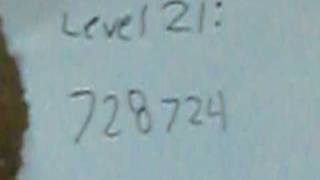 Level 21:
728724